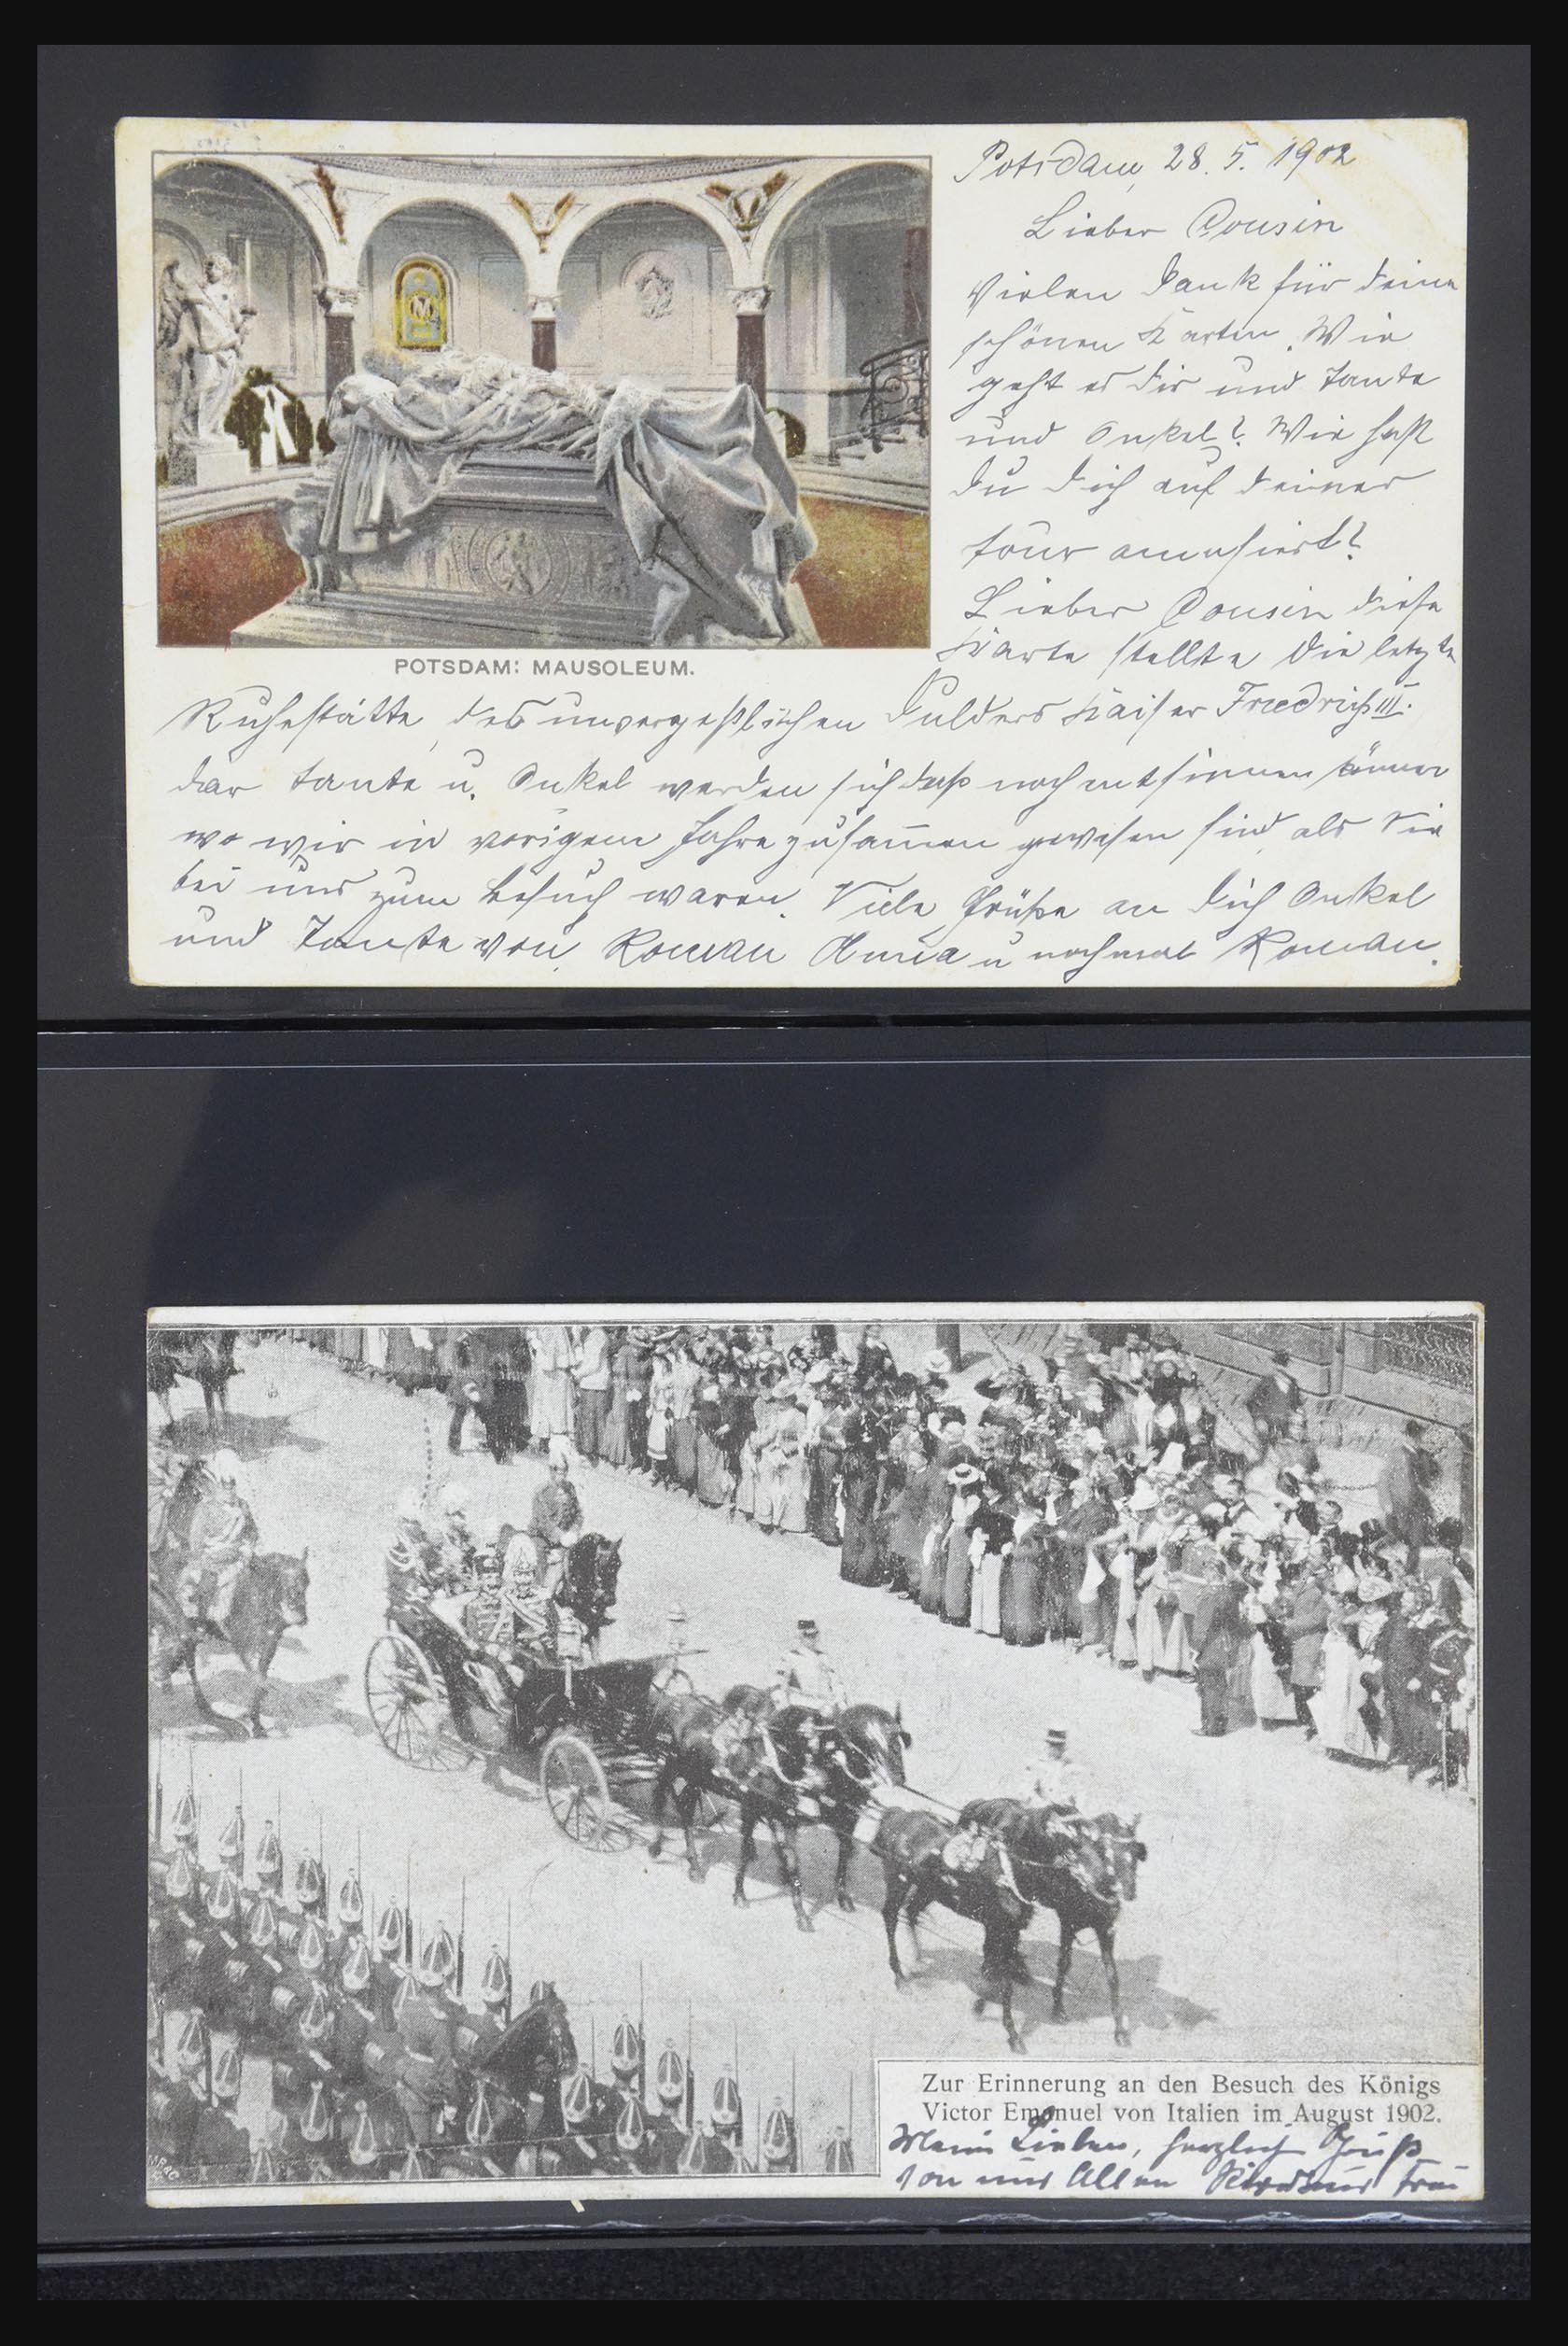 Potsdam, 28. 5. 1902
Lieber Cousin
Vielen Dank für deine
schönen Karten. Wie
geht es dir und Tante
und Onkel? Wie hast
du dich auf deiner
tour amusiert?
Lieber Cousin diese
Karte stellte die letzte
POTSDAM: MAUSOLEUM.
Ruhestätte, des unvergeßlichen Dulders Kaiser Friedrich III.
dar tante u. Onkel werden sich daß noch entsinnen können
wo wir in vorigem Jahre zusammen gewesen sind, als Sie
bei uns zum besuch waren. Viele Grüße an dich Onkel
und Tante von Roman Anna u nochmal Roman.
Zur Erinnerung an den Besuch des Königs
Victor Emanuel von Italien im August 1902.
Meine Lieben, herzlich Gruß
von uns Allen